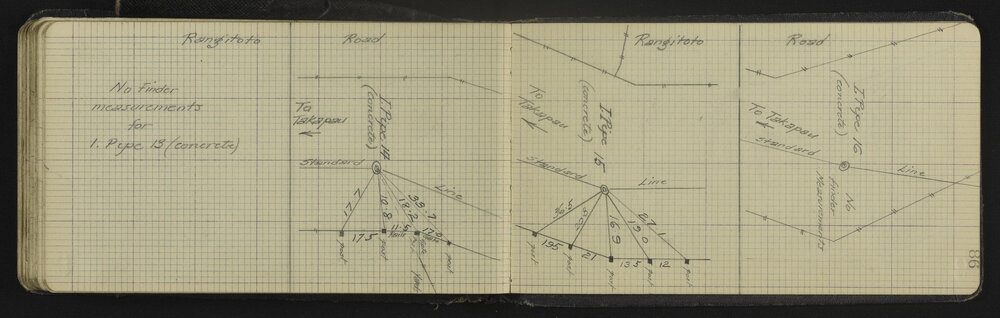 Rangitoto Road
No Finder
measurements
for
I. Pipe 13 (concrete)
To
Takapau
I. Pipe 14
(concrete)
Standard Line
17.7
10.8
18.2
33.7
17.5
11.5
17.0
post
post
post
Rangitoto Road
To
Takapau
I Pipe 15
(concrete)
Standard Line
16.9
19.0
27.1
195
21
13.5
12
post
post
post
post
post
To Takapau
I. Pipe 16
(concrete)
Standard
No
Finder
Measurements
86